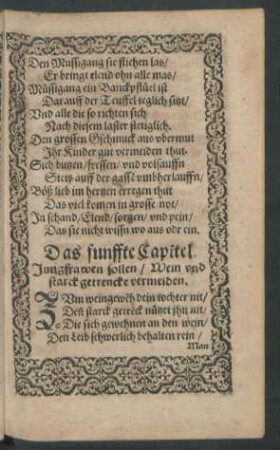 Den Müssigang sie fliehen las/
Er bringt elend ohn alle mas/
Müssigang ein Banckpflüel ist
Darauff der Teuffel teglich sitzt/
Vnd alle die so richten sich
Nach diesem laster stetiglich.
Den grossen Gschmuck aus vbermut
Ihr Kinder gut vermeiden thut.
Sich butzen/ fressen/ vnd vollsauffn
Stets auff der gasse vmbherlauffn/
Böß lieb im hertzen erregen thut
Das viel komen in grosse not/
In schand/ Elend/ sorgen/ vnd pein/
Das sie nicht wissn wo aus odr ein.
Das funffte Capitel
Jungfrawen sollen/ Wein vnd
starck getrencke vermeiden.
ZVm wein gewéh dein tochter nit/
Deñ starck getreck nützet jhn nit/
Die sich gewehnen an den wein/
Den Leib schwerlich behalten rein/
Man